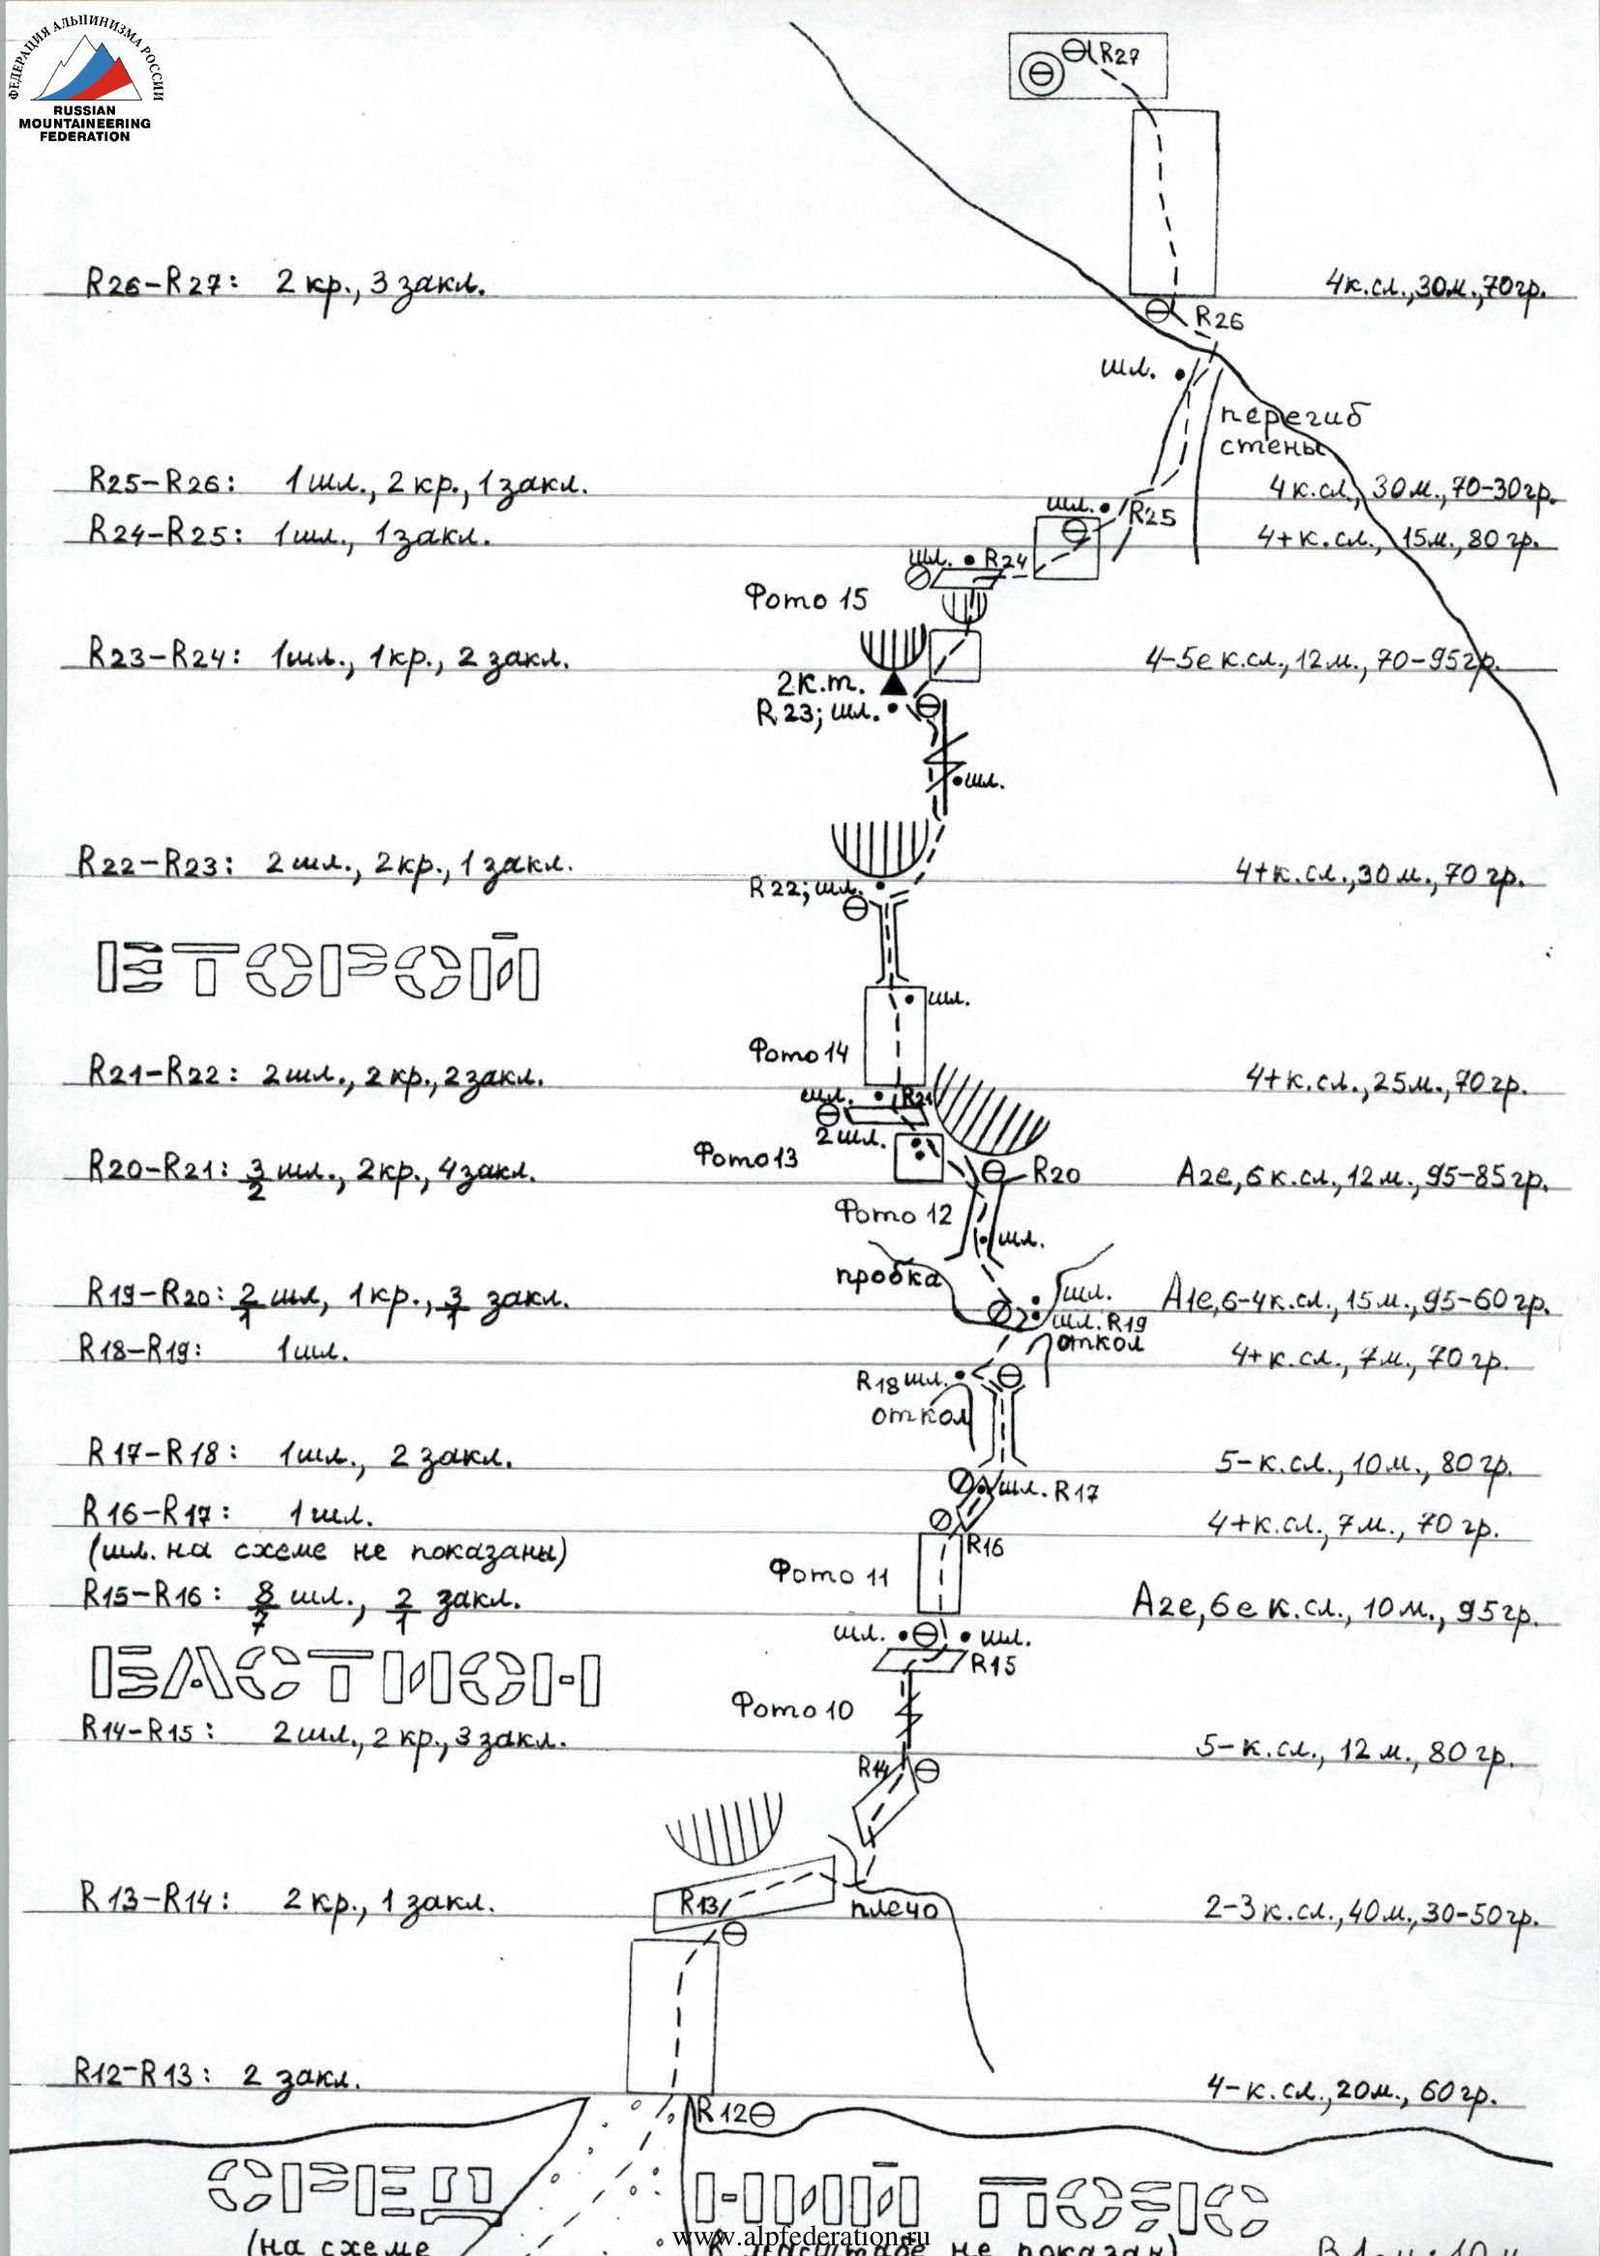 ФЕДЕРАЦИЯ АЛЬПИНИЗМА РОССИИ
RUSSIAN
MOUNTAINEERING
FEDERATION
R27
R26–R27: 2 кр., 3 закл.
4к.сл., 30м., 70гр.
R26
шл.
перегиб
стены
R25–R26: 1 шл., 2 кр., 1 закл.
4 к.сл., 30м., 70-30гр.
шл.
R25
R24–R25: 1 шл., 1 закл.
4+ к.сл., 15м., 80 гр.
шл. R24
Фото 15
R23–R24: 1 шл., 1 кр., 2 закл.
4-5е к.сл., 12м., 70-95гр.
2 к.т.
R 23; шл.
шл.
R22–R23: 2 шл., 2 кр., 1 закл.
4+ к.сл., 30 м., 70 гр.
R 22; шл.
ВТОРОЙ
шл.
Фото 14
R21–R22: 2 шл., 2 кр., 2 закл.
4+ к.сл., 25м., 70гр.
шл. R21
2 шл.
Фото 13
R20–R21: 3/2 шл., 2 кр., 4 закл.
R20
А2е, 6 к.сл., 12м., 95-85гр.
Фото 12
шл.
пробка
R19–R20: 2/1 шл, 1 кр., 3/1 закл.
шл.
А1е, 6-4к.сл., 15м., 95-60гр.
шл. R19
откол
R18–R19: 1 шл.
4+ к.сл., 7м., 70 гр.
R18 шл.
откол
R17–R18: 1 шл., 2 закл.
5- к.сл., 10м., 80гр.
шл. R17
R16–R17: 1 шл.
4+к.сл., 7м., 70 гр.
(шл. на схеме не показаны)
R16
Фото 11
R15–R16: 8/7 шл., 2/1 закл.
А2е, 6е к.сл., 10м., 95гр.
шл. шл.
R15
БАСТИОН
Фото 10
R14–R15: 2 шл., 2 кр., 3 закл.
5- к.сл., 12 м., 80 гр.
R14
R13–R14: 2 кр., 1 закл.
R13
плечо
2-3 к.сл., 40м., 30-50гр.
R12–R13: 2 закл.
4- к.сл., 20м., 60гр.
R 12
СРЕДНИЙ ПОЯС
www.alpfederation.ru
(на схеме в масштабе не показан)